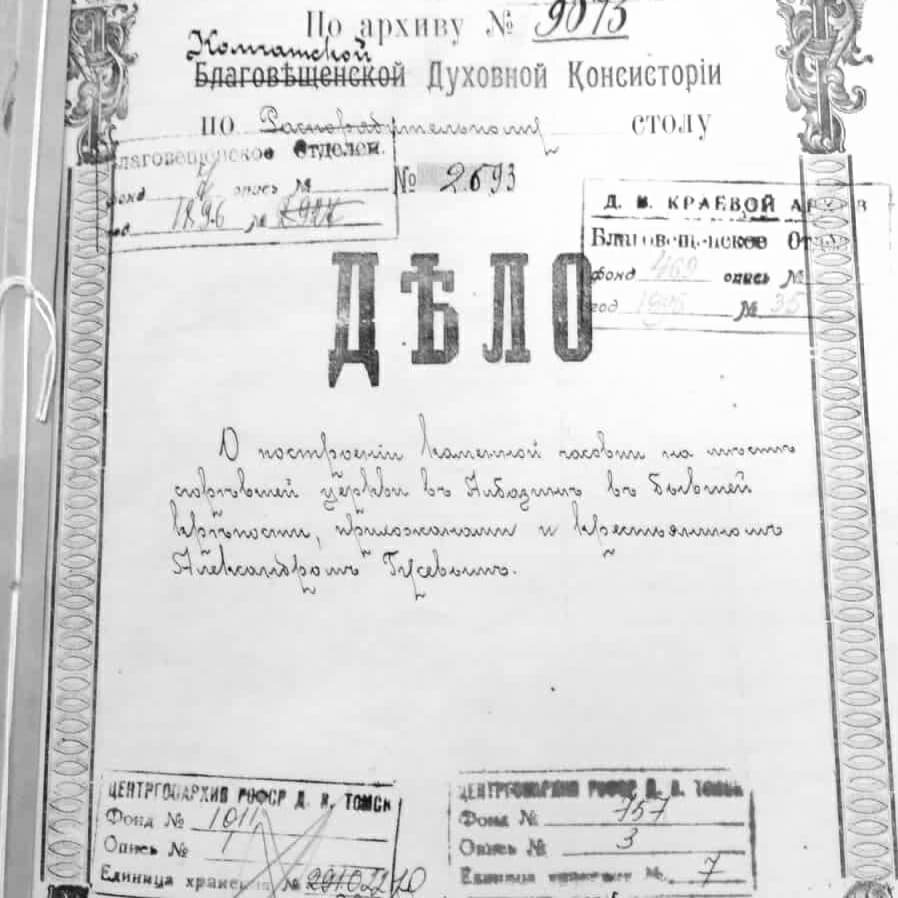 По архиву № 9073
Камчатской
Благовѣщенской Духовной Консисторіи
по Распорядительному столу
Благовещенское Отделен.
фонд опись №
1896 №
№ 2693
Д. В. КРАЕВОЙ АРХИВ
Благовещенское Отдел
фонд 469 опись №
год № 35
ДѢЛО
О построеніи каменной часовни на мѣстѣ
сгорѣвшей церкви въ Албазинѣ въ бывшей
крѣпости, прихожанами и крестьяниномъ
Александромъ Гусевымъ.
ЦЕНТРГОСАРХИВ РСФСР Д. В. ТОМСК
Фонд № 1011
Опись № 1
Единица хранения №
ЦЕНТРГОСАРХИВ РСФСР Д. В. ТОМСК
Фонд № 757
Опись № 3
Единица хранения № 7